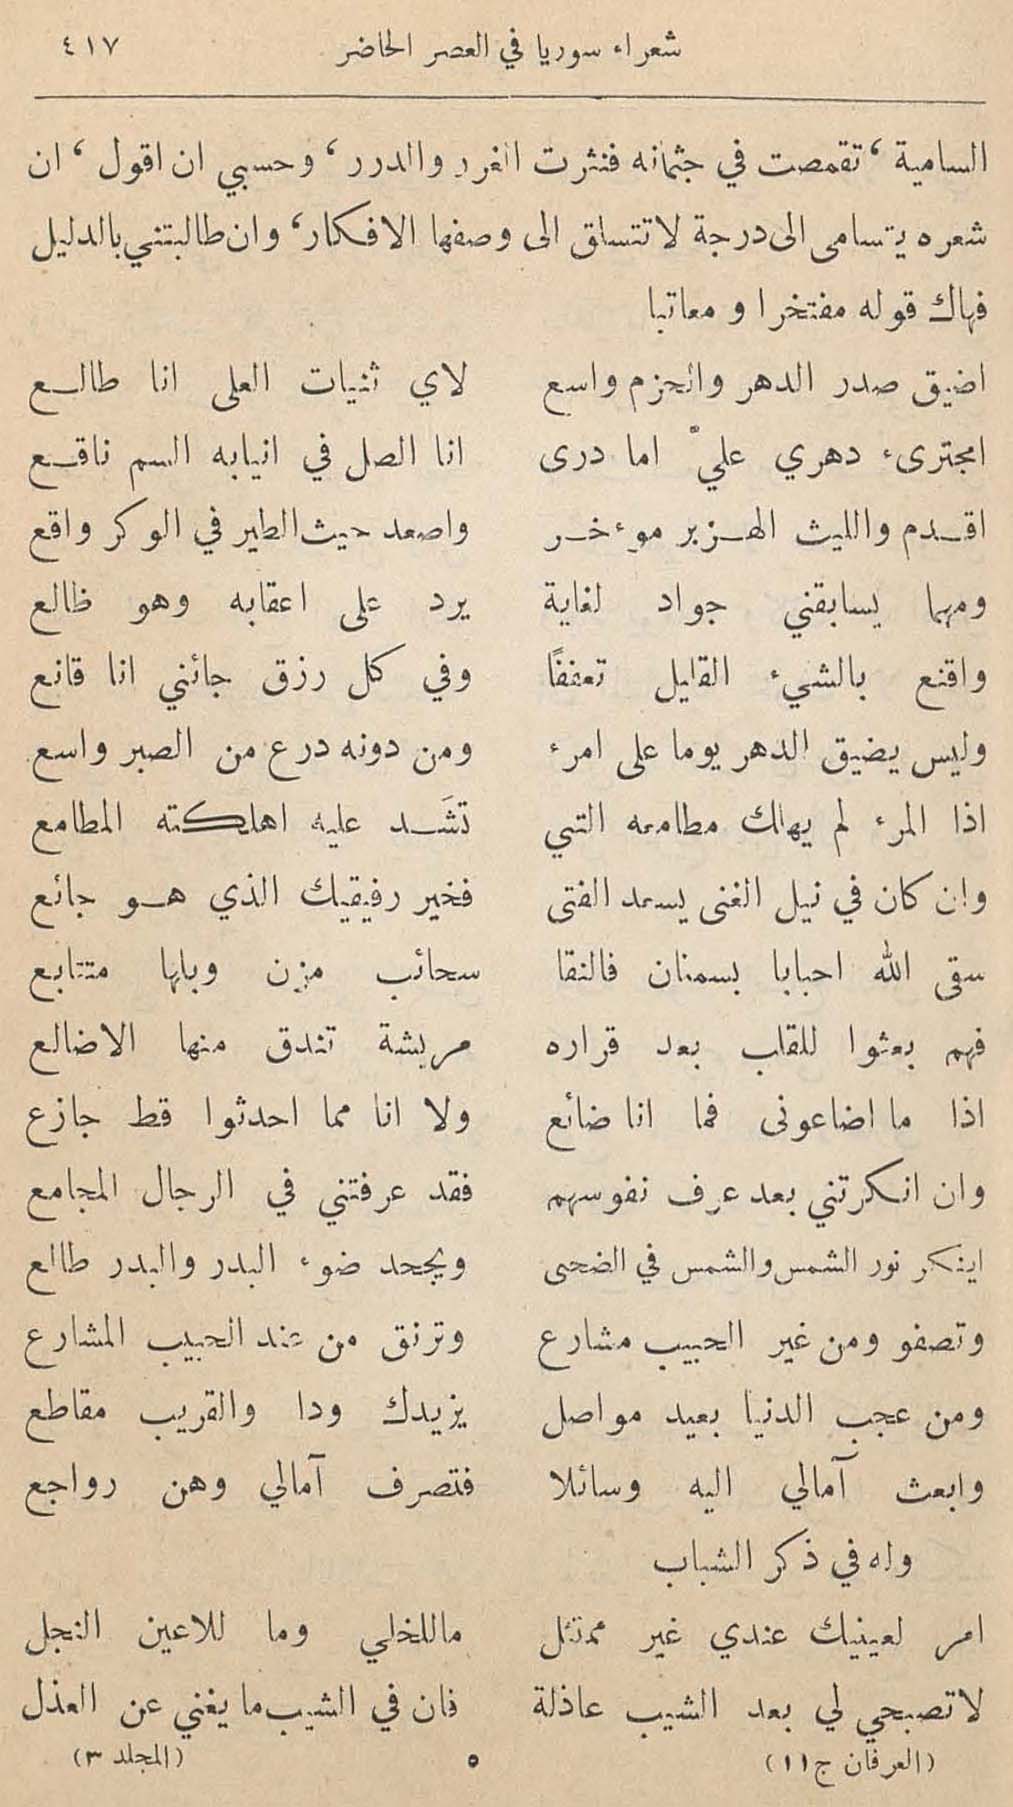 شعراء سوريا في العصر الحاضر ٤١٧
السامية ، تقمصت في جثمانه فنثرت الغرر والدرر ، وحسبي ان اقول ، ان
شعره يتسامى الى درجة لا تتسلق الى وصفها الافكار ، وان طالبتني بالدليل
فهاك قوله مفتخرا و معاتبا
اضيق صدر الدهر والحزم واسع لاي ثنيات العلى انا طالع
امجترىء دهري عليّ اما درى انا الصل في انيابه السم ناقع
اقدم والليث الهزبر موءخر واصعد حيث الطير في الوكر واقع
ومهما يسابقني جواد لغاية يرد على اعقابه وهو ظالع
واقنع بالشيء القليل تعففًا وفي كل رزق جائني انا قانع
وليس يضيق الدهر يوما على امرء ومن دونه درع من الصبر واسع
اذا المرء لم يهلك مطامعه التي تشَد عليه اهلكته المطامع
وان كان في نيل الغنى يسعد الفتى فخير رفيقيك الذي هو جائع
سقى الله احبابا بسمنان فالنقا سحائب مزن وبلها متتابع
فهم بعثوا للقلب بعد قراره مريشة تندق منها الاضالع
اذا ما اضاعونى فما انا ضائع ولا انا مما احدثوا قط جازع
وان انكرتني بعد عرف نفوسهم فقد عرفتني في الرجال المجامع
اينكر نور الشمس والشمس في الضحى ويجحد ضوء البدر والبدر طالع
وتصفو ومن غير الحبيب مشارع وترنق من عند الحبيب المشارع
ومن عجب الدنيا بعيد مواصل يزيدك ودا والقريب مقاطع
وابعث آمالي اليه وسائلا فتصرف آمالي وهن رواجع
وله في ذكر الشباب
امر لعينيك عندي غير ممتثل ماللخلي وما للاعين النجل
لا تصبحي لي بعد الشيب عاذلة فان في الشيب ما يغني عن العذل
(العرفان ج١١) ٥ (المجلد ٣)